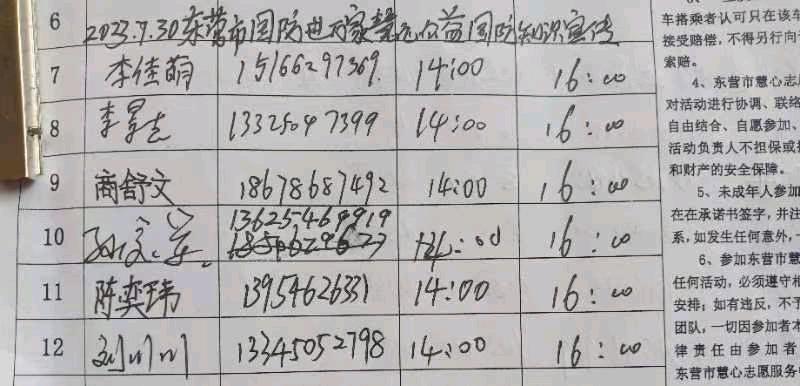 6 2023.7.30东营市国防进万家慧元公益国防知识宣传
7 李佳萌 15166297369 14:00 16:00
8 李昊志 13325047399 14:00 16:00
9 商舒文 18678687492 14:00 16:00
13625468919
10 14:00 16:00
11 陈奕玮 13954626331 14:00 16:00
12 刘川川 13345052798 14:00 16:00
车搭乘者认可只在该车
接受赔偿，不得另行向
索赔。
4、东营市慧心志愿
对活动进行协调、联络
自由结合、自愿参加、
活动负责人不担保或
和财产的安全保障。
5、未成年人参加
在在承诺书签字，并注
系，如发生任何意外，
6、参加东营市慧
任何活动，必须遵守相
安排；如有违反，不予
团队，一切因参加者本
律责任由参加者
东营市慧心志愿服务